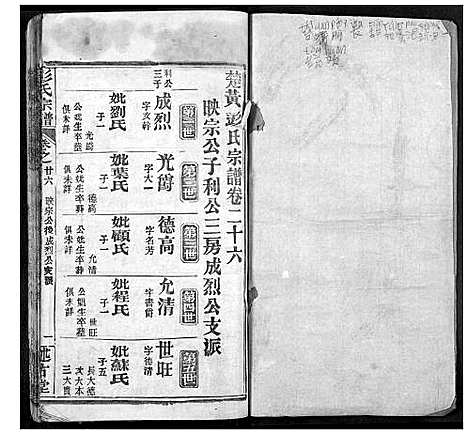 楚黃彭氏宗譜卷二十六
映宗公子利公三房成烈公支派
第一世
利公三子
成烈
字文幹
妣劉氏
子一
允爵
公妣生卒葬俱未詳
第二世
光爵
字大一
妣葉氏
子一
德高
公妣生卒葬俱未詳
第三世
德高
字名芳
妣顧氏
子一
允清
公妣生卒葬俱未詳
第四世
允清
妣程氏
子一
世旺
公妣生卒葬俱未詳
第五世
世旺
字德清
妣蘇氏
子五
長大德
彭氏宗譜
卷之廿六
映宗公後成烈公支派
一
述古堂